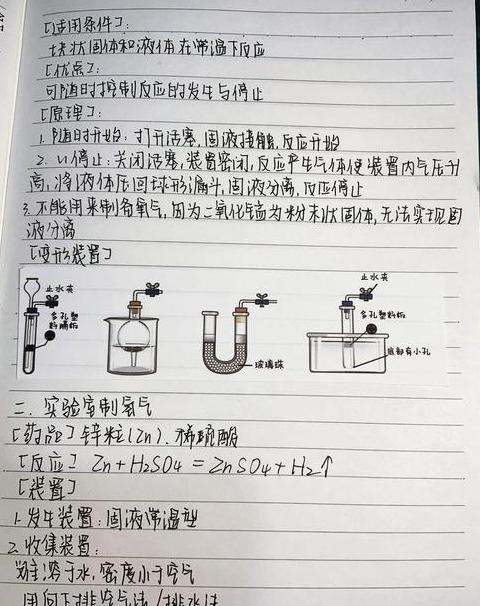 [适用条件]:
块状固体和液体在常温下反应
[优点]:
可随时控制反应的发生与停止
[原理]:
1. 随时开始: 打开活塞, 固液接触, 反应开始
2. 〃停止: 关闭活塞, 装置密闭, 反应产生气体使装置内气压升
高, 将液体压回球形漏斗, 固液分离, 反应停止
3. 不能用来制备氧气, 因为二氧化锰为粉末状固体, 无法实现固
液分离
[变形装置]
止水夹
多孔塑
料隔板
玻璃珠
止水夹
多孔塑料板
底部有小孔
二. 实验室制氢气
[药品] 锌粒(Zn). 稀硫酸
[反应] Zn + H₂SO₄ = ZnSO₄ + H₂↑
[装置]
1. 发生装置: 固液常温型
2. 收集装置:
溶于水, 密度小于空气
用向下排空气法 / 排水法